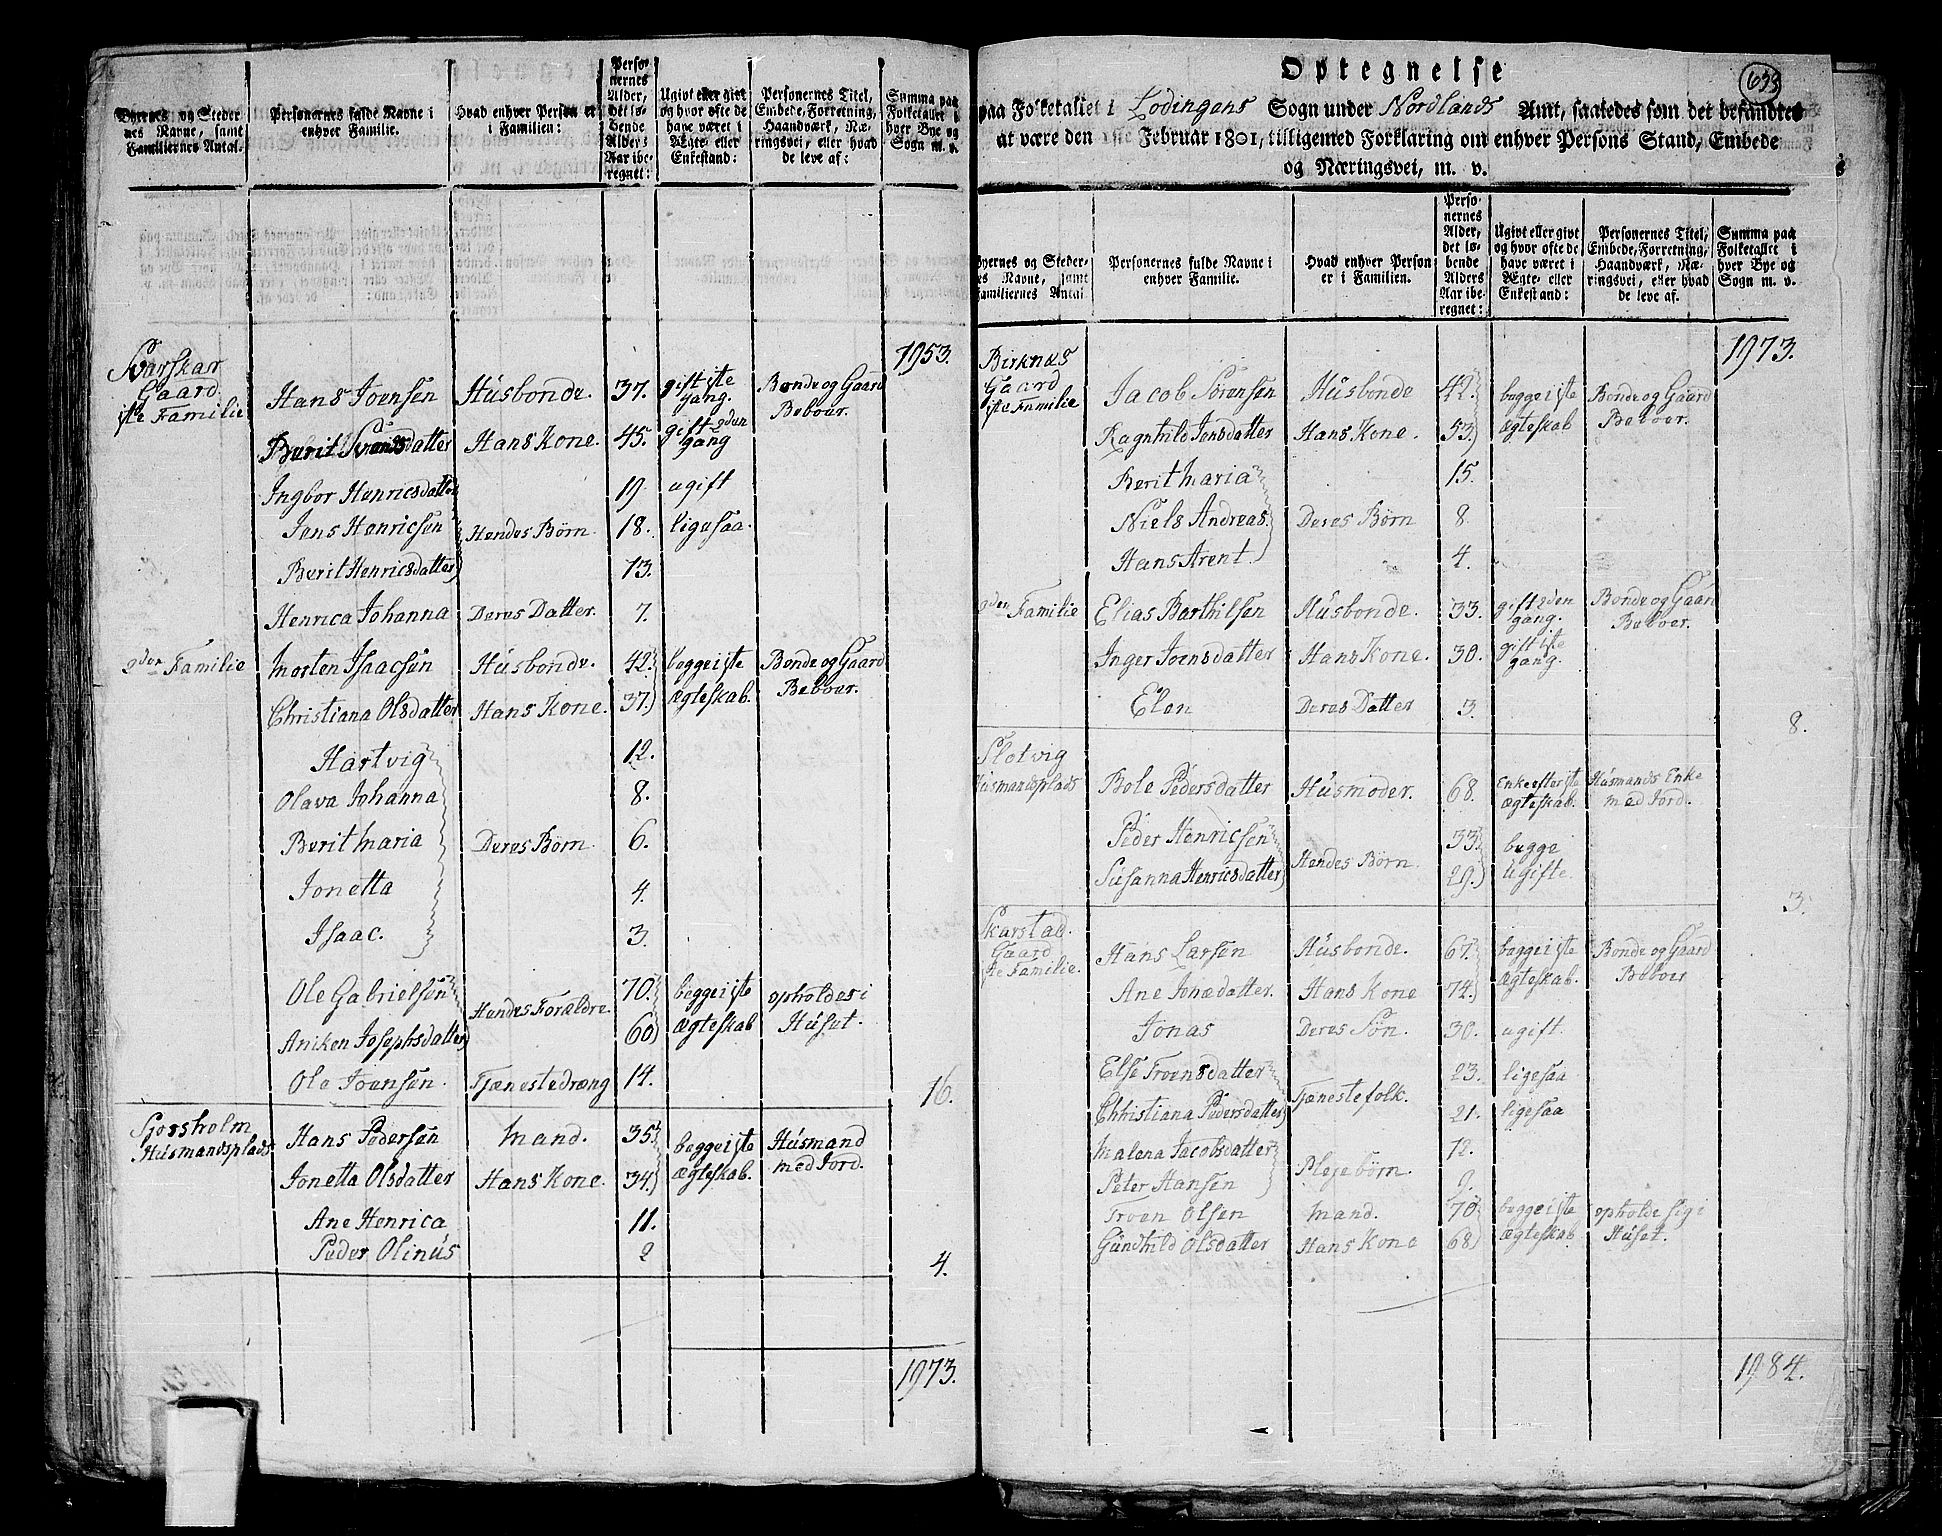 Byernes og Steder-
nes Navne, samt
Familiernes Antal.
Personernes fulde Navne i
enhver Familie.
Hvad enhver Person er
i Familien:
Perso-
nernes
Alder,
det lø-
bende
Alders
Aar ibe-
regnet:
Ugivt eller givt
og hvor ofte de
have været i
Ægte- eller
Enkestand:
Personernes Titel,
Embede, Forretning,
Haandværk, Næ-
ringsvei, eller hvad
de leve af:
Summa paa
Folketallet i
hver Bye og
Sogn m. v.
1953.
Svarskar
Gaard
1ste Familie
Hans Joensen Husbonde 37. gift 1ste gang. Bonde og Gaard Beboer.
Berit Svendsdatter Hans Kone. 45. gift 2den gang
Ingbor Henricsdatter 19. ugift
Jens Henricsen Hendes Børn 18. ligesaa
Berit Henricsdatter 13.
Henrica Johanna Deres Datter. 7.
2den Familie Morten Isaacsen Husbonde. 42. begge 1ste Bonde og Gaard
Christiana Olsdatter Hans Kone. 37. ægteskab. Beboer.
Hartvig 12.
Olava Johanna 8.
Berit Maria Deres Børn 6.
Jonetta 4.
Isaac. 3.
Ole Gabrielsen Hendes Forældre 70. begge 1ste opholdes i
Aniken Josephsdatter 60 ægteskab Huset.
Ole Joensen. Tjænestedræng 14.
16.
Husmandsplads.
Hans Pedersen Mand. 35 begge 1ste Husmand
Jonetta Olsdatter Hans Kone. 34. ægteskab. med Jord.
Ane Henrica 11.
Peder Olinus 2
4.
1973.
633
Optegnelse
paa Folketallet i Lodingens Sogn under Nordlands Amt, saaledes som det befandtes
at være den 1ste Februar 1801, tilligemed Forklaring om enhver Persons Stand, Embede
og Næringsvei, m. v.
Byernes og Steder-
nes Navne, samt
Familiernes Antal
Personernes fulde Navne i
enhver Familie.
Hvad enhver Person
er i Familien.
Perso-
nernes
Alder,
det lø-
bende
Alders
Aar ibe-
regnet:
Ugivt eller givt
og hvor ofte de
have været i
Ægte- eller
Enkestand:
Personernes Titel,
Embede, Forretning,
Haandværk, Næ-
ringsvei, eller hvad
de leve af.
Summa paa
Folketallet i
hver Bye og
Sogn m. v.
1973.
Birknæs
Gaard
1ste Familie
Jacob Sørensen Husbonde 42. begge 1ste Bonde og Gaard
Ragnhild Jensdatter Hans Kone. 53. ægteskab Beboer.
Berit Maria 15.
Niels Andreas Deres Børn 8.
Hans Arent. 4.
2den Familie Elias Barthilsen Husbonde. 33. gift 2den gang. Bonde og Gaard Beboer.
Inger Joensdatter Hans Kone. 30. gift 1ste gang.
Elen Deres Datter 3.
8.
Slotvig
Husmandsplads Bole Pedersdatter Husmoder. 68. Enke efter 1ste ægteskab. Husmands Enke med Jord.
Peder Henricsen Hendes Børn 33. begge
Susanna Henricsdatter 29. Ugifte.
3.
Skarstad.
Gaard
1ste Familie.
Hans Larsen Husbonde. 67. begge 1ste Bonde og Gaard
Ane Jonædatter. Hans Kone 74. ægteskab. Beboer
Jonas Deres Søn. 30. ugift.
Else Troensdatter Tjænestefolk. 23. ligesaa
Christiana Pedersdatter 21. ligesaa
Malena Jacobsdatter Plejebørn. 12.
Peter Hansen 9.
Troen Olsen Mand. 70 begge 1ste opholde sig i
Gundhild Olsdatter Hans Kone 68 ægteskab Huset.
1984.